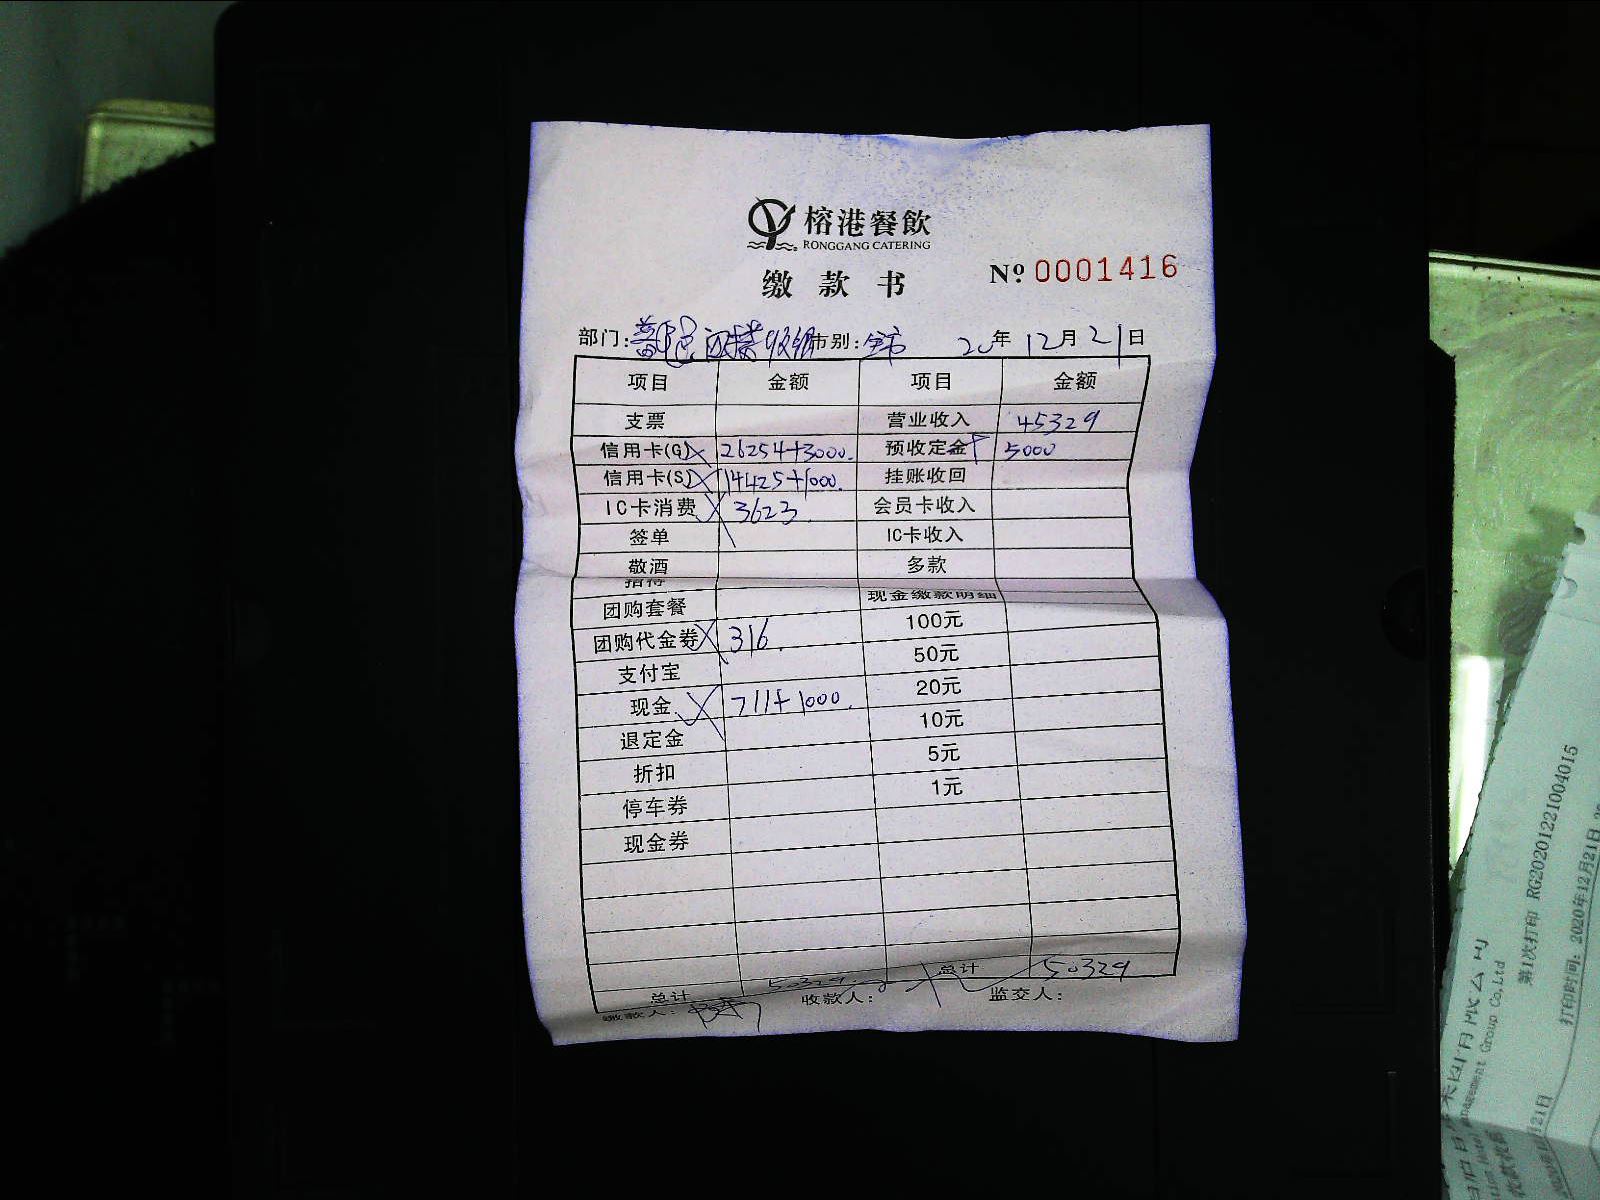 榕港餐飲
RONGGANG CATERING
缴款书 Nº 0001416
部门: 市别: 全市 20年12月21日
项目 金额 项目 金额
支票 营业收入 45329
信用卡(G) 26254+3000. 预收定金 5000
信用卡(S) 14425+1000. 挂账收回
IC卡消费 3623. 会员卡收入
签单 IC卡收入
敬酒 多款
招待 现金缴款明细
团购套餐 100元
团购代金券 316. 50元
支付宝 20元
现金 711+1000. 10元
退定金 5元
折扣 1元
停车券
现金券
总计 50329. 总计 50329
缴款人: 收款人: 监交人:
第1次打印 RG20201221004015
打印时间: 2020年12月21日
Group Co,Ltd